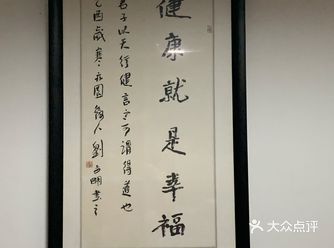 健康就是幸福
君子以天行健言之可谓得道也
乙酉歲寒
刘文明书之
大众点评